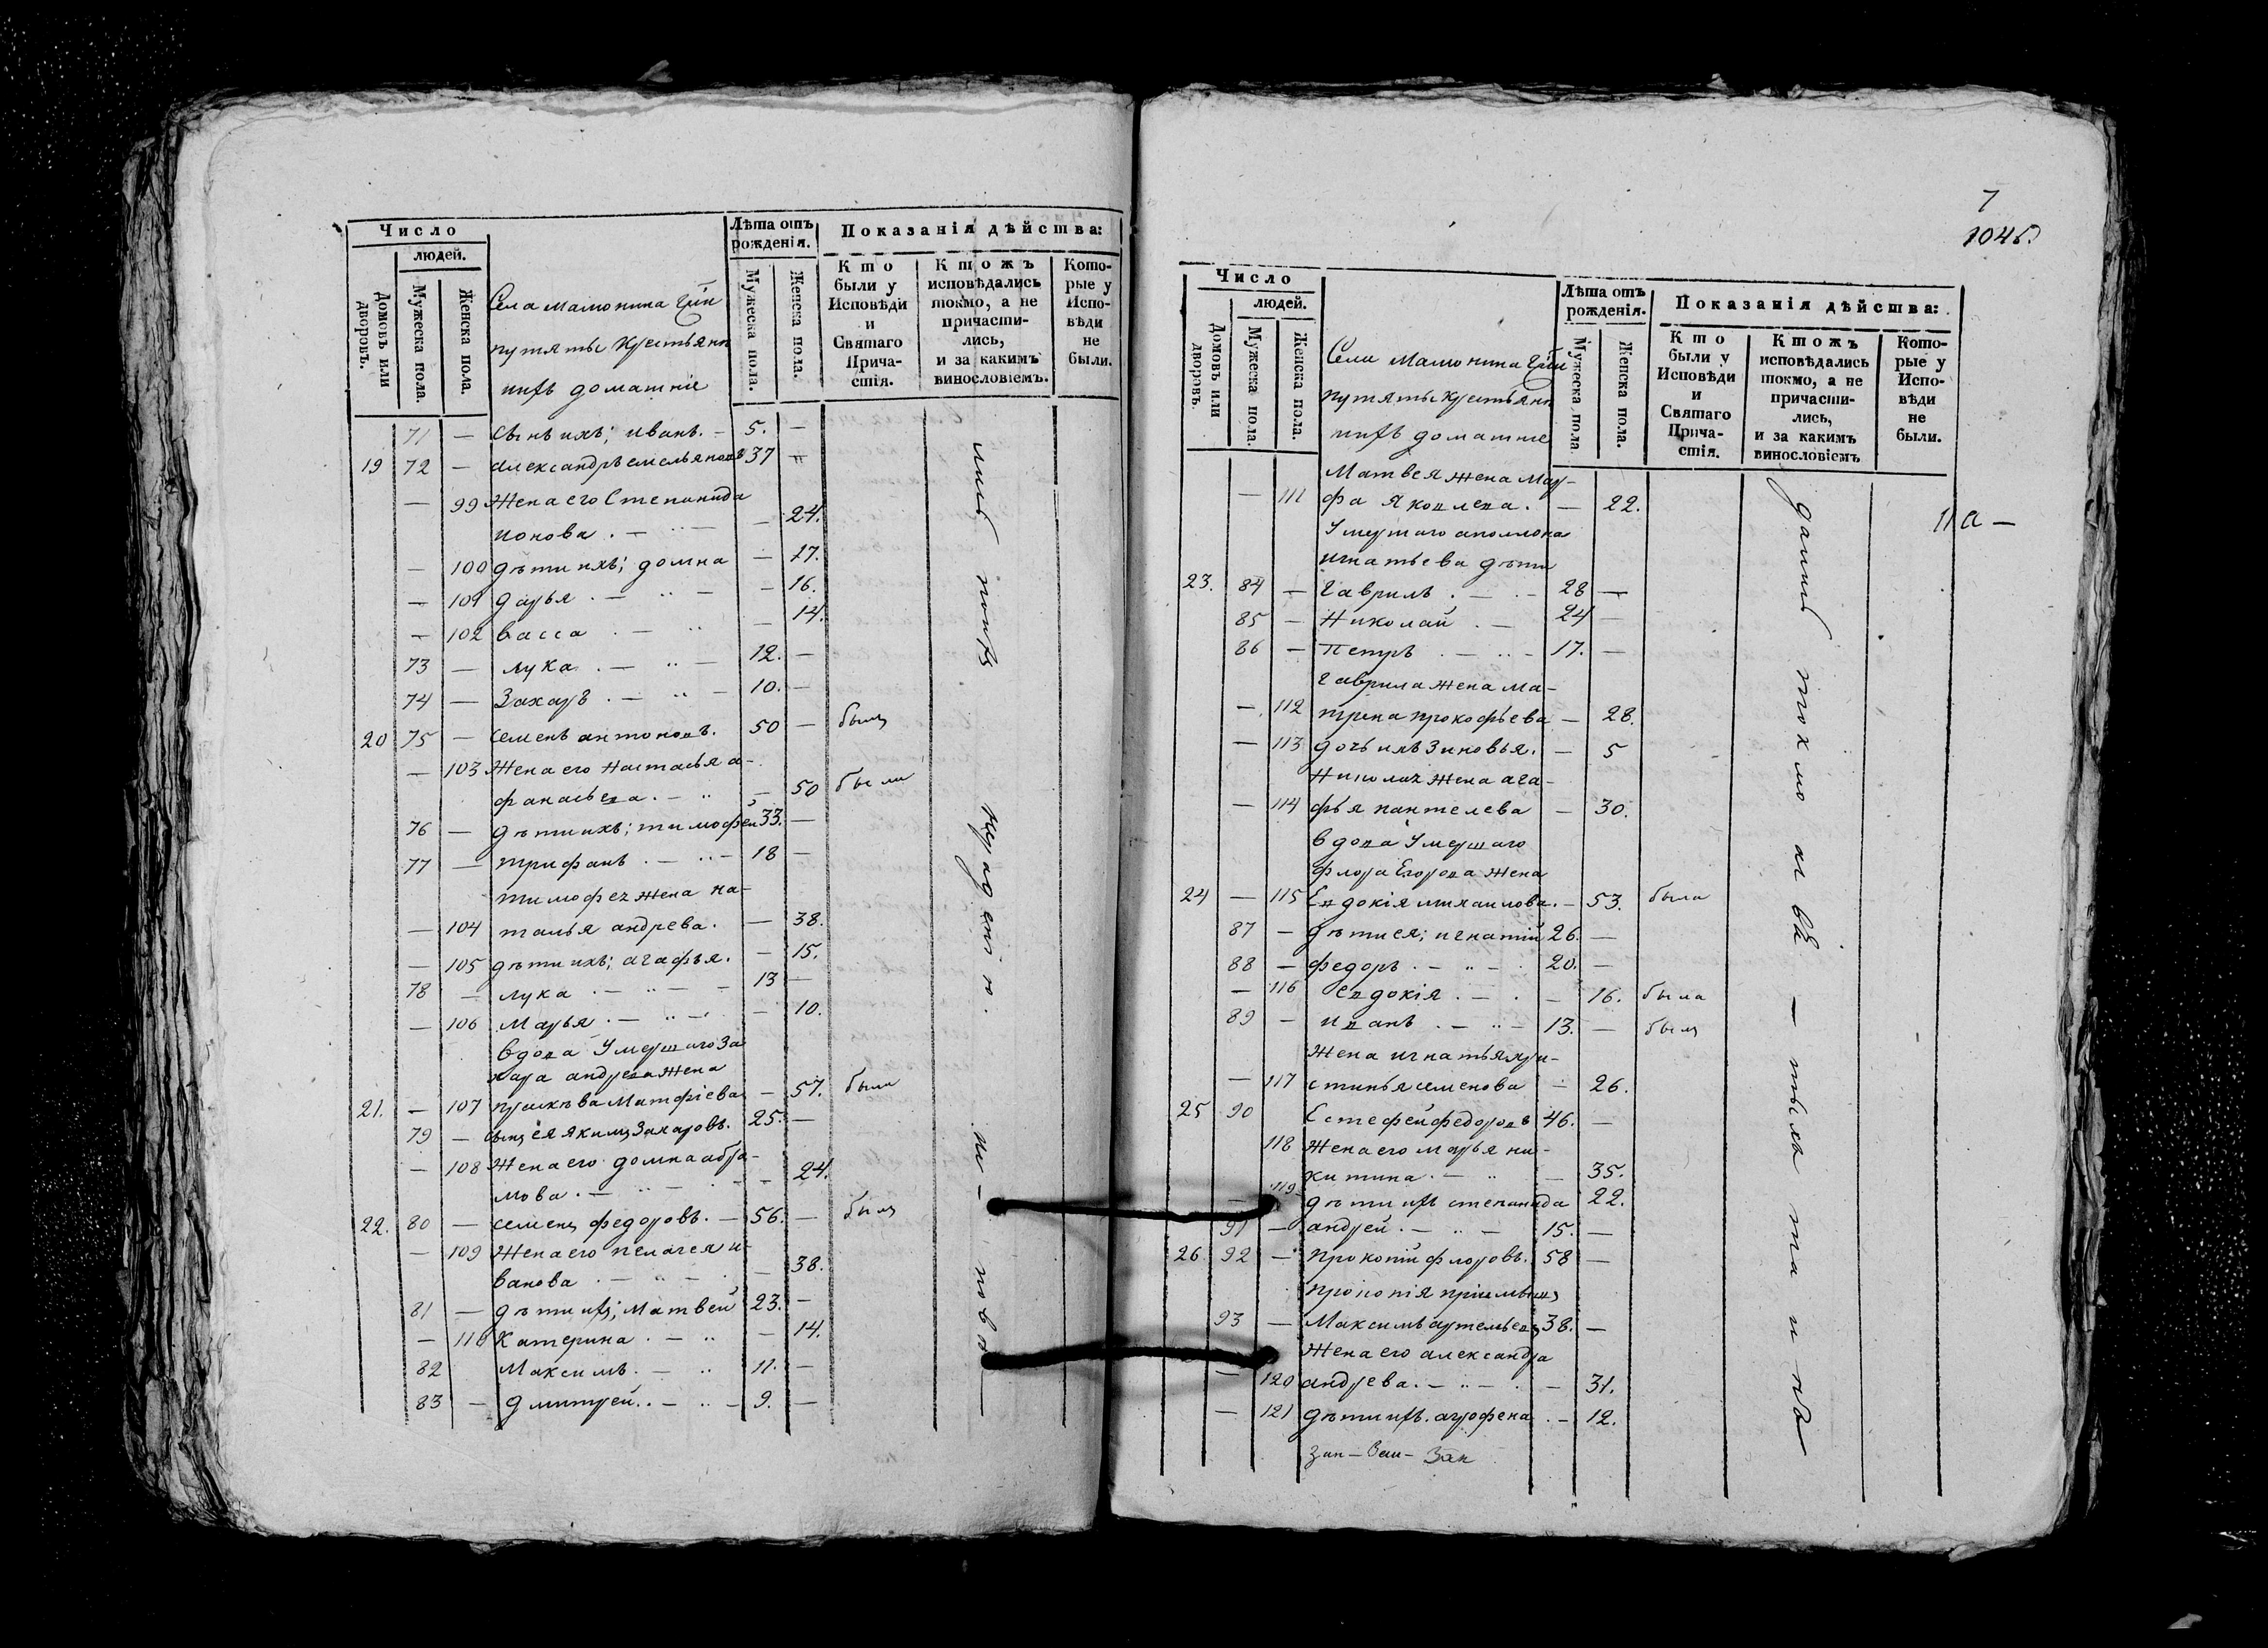 Число
людей.
Домовъ или дворовъ.
Мужеска пола.
Женска пола.
Села мамонина Гжи
путяты крестьяне
ихъ домашніе
Лѣта отъ рожденія.
Мужеска пола.
Женска пола.
Показанія дѣйства:
Кто были у Исповѣди и Святаго Причастія.
Ктожъ исповѣдались токмо, а не причастились, и за какимъ винословіемъ.
Которые у Исповѣди не были.
71 — сынъ ихъ; иванъ. — 5. —
19 72 — александръ емельяновъ 37 —
— 99 Жена его Степанида
ионова. — — 24.
— 100 дѣти ихъ; домна — 17.
— 101 дарья. — — 16.
— 102 васса — — 14.
73 — лука. — 12. —
74 — Захаръ. — 10. —
20 75 — семенъ антоновъ. 50 — былъ
— 103 Жена его Настасья а-
фанасьева. — — 50 была
76 — дѣти ихъ; тимофей 33. —
77 — трифанъ. — 18 —
тимофея жена на-
— 104 талья андрева. — 38.
— 105 дѣти ихъ; агафья. — 15.
78 — лука — 13 —
— 106 Марья. — — 10.
вдова Умершаго За
хара андрева жена
21. — 107 прасковья Матфіева — 57. была
79 — сынъ ея Якимъ Захаровъ. 25. —
— 108 Жена его домна абра-
мова. — — 24.
22. 80 — семенъ федоровъ. — 56. — былъ
— 109 Жена его пелагея и-
ванова — — 38.
81 — дѣти ихъ; Матвей 23. —
— 110 Катерина. — — 14.
82 Максимъ. — 11. —
83 — дмитрей. — 9. —
7
1046.
Число
людей.
Домовъ или дворовъ.
Мужеска пола.
Женска пола.
Села мамонина Гжи
путяты крестьяне
ихъ домашніе
Лѣта отъ рожденія.
Мужеска пола
Женска пола.
Показанія дѣйства:
Кто были у Исповѣди и Святаго Причастія.
Ктожъ исповѣдались токмо, а не причастились, и за какимъ винословіемъ
Которые у Исповѣди не были.
Матвея жена мар-
— 111 фа Яковлева. — 22.
Умершаго аполлона
игнатьева дѣти
23. 84 — Гаврилъ. — 28 —
85 — Николай. — 24 —
86 — Петръ — 17. —
гаврила жена ма-
— 112 трена прокофьева — 28.
— 113 дочь ихъ Зиновья. — 5
Николая жена ага-
— 114 фья пантелева — 30.
вдова Умершаго
флора Егорова жена
24 — 115 Евдокія михаилова. — 53. была
87 — дѣти ея; игнатій 26. —
88 — федоръ. — 20. —
— 116 Евдокія. — 16. была
89 — иванъ. — 13. — былъ
жена игнатья хри-
— 117 стинья семенова — 26.
25 90 Естефей федоровъ 46. —
118 Жена его марья ни-
китина. — — 35.
— 119 дѣти ихъ степанида 22.
91 — андрей. — 15. —
26 92 — прокопій флоровъ. 58 —
прокопія пріемышъ
93 — Максимъ артемьевъ 38. —
Жена его александра
— 120 андрева. — — 31.
— 121 дѣти ихъ. агрофена. — 12.